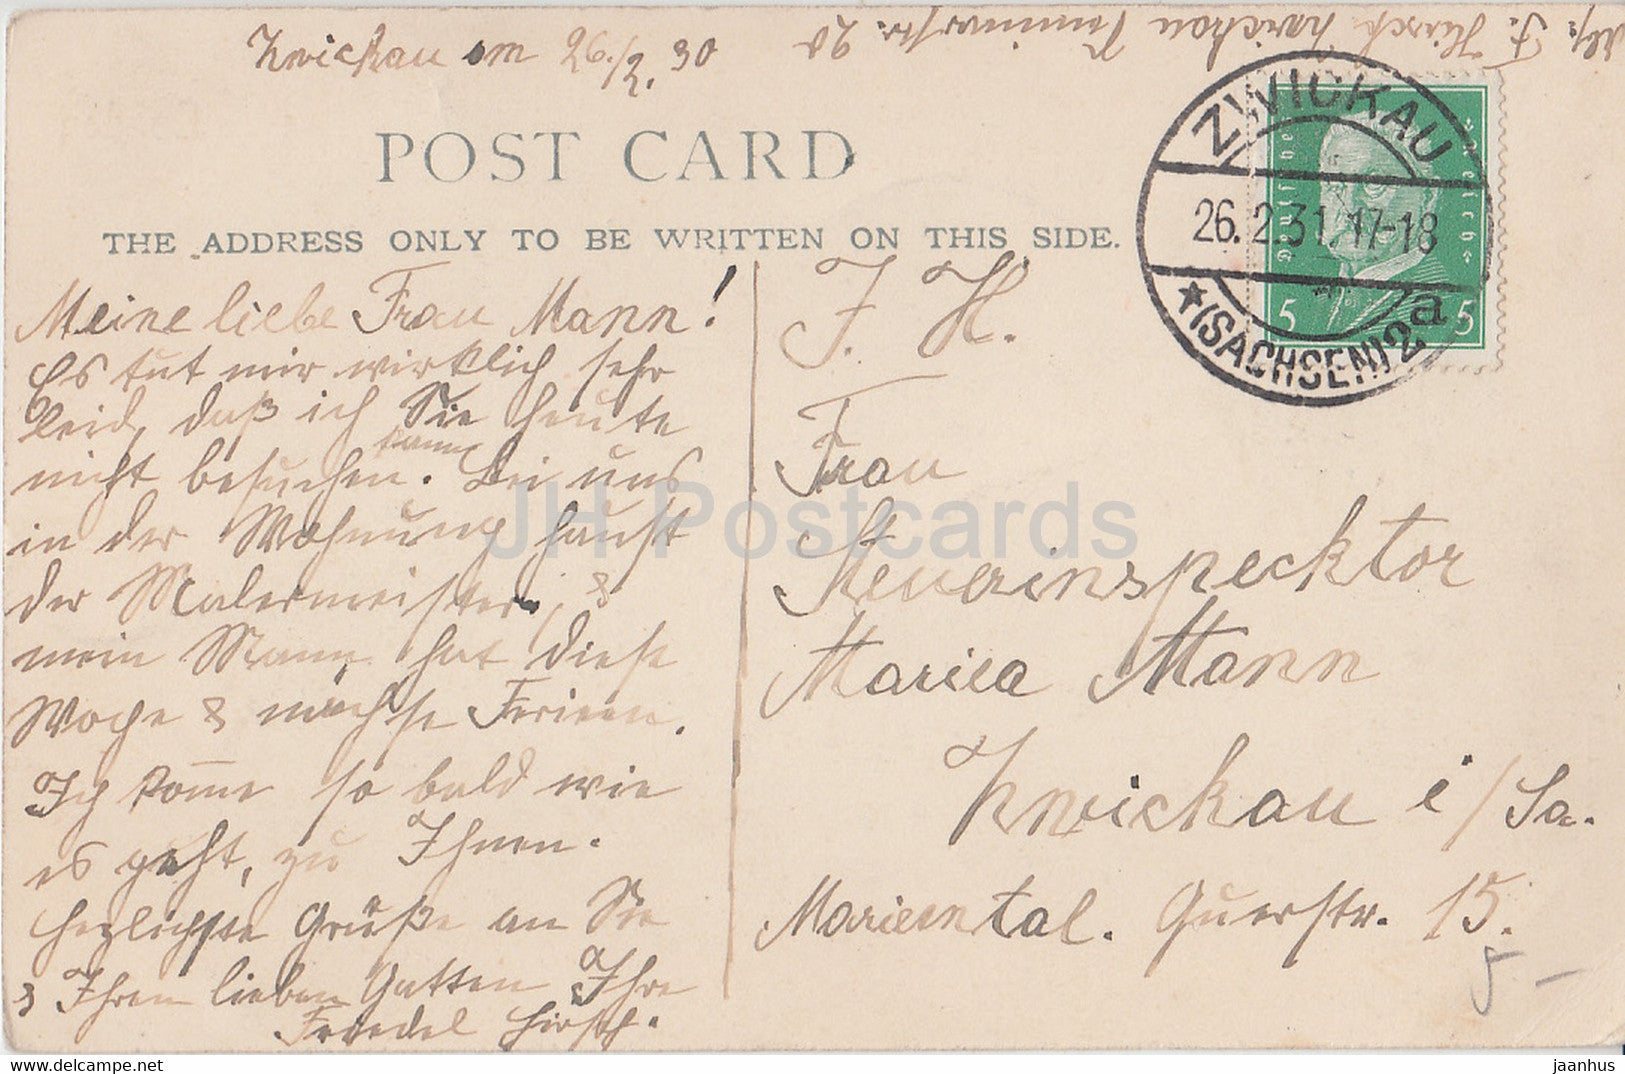 Zwickau am 26./2. 30
Abs. F. Hirsch Zwickau 20
POST CARD
THE ADDRESS ONLY TO BE WRITTEN ON THIS SIDE.
ZWICKAU
26.2.31.17-18
* (SACHSEN) 2 a
Deutsches Reich
5 5
Meine liebe Frau Mann!
Es tut mir wirklich sehr
leid, daß ich Sie heute
nicht besuchen kann. Bei uns
in der Wohnung haust
der Malermeister, &
mein Mann hat diese
Woche & nächste Ferien.
Ich kom̄e so bald wie
es geht, zu Ihnen.
Herzlichste Grüße an Sie
& Ihren lieben Gatten Ihre
Friedel Hirsch.
F. H.
Frau
Steuerinspecktor
Mariea Mann
Zwickau i/Sa.
Mariental. Querstr. 15.
5 -
JH Postcards
www.delcampe.net
jaanhus